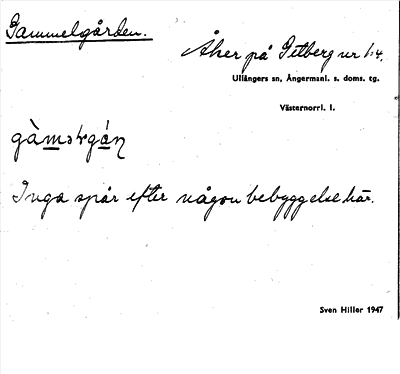 Gammelgården.
Åker på Petberg nr 1:4.
Ullångers sn, Ångermanl. s. doms. tg.
Västernorrl. l.
Inga spår efter någon bebyggelse här.
Sven Hiller 1947